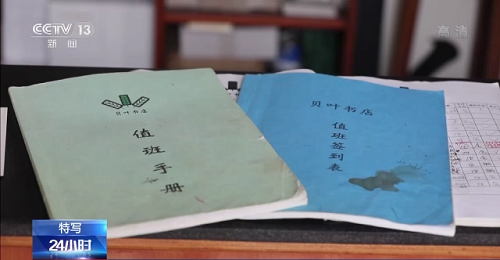 CCTV 13
新闻
高清
贝叶书店
值班手册
贝叶书店
值班签到表
特写
24小时